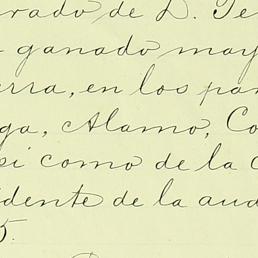 rado de D. Te
ganado may
rra, en los par
ga, Alamo, Co
si como de la C
idente de la aud
5.